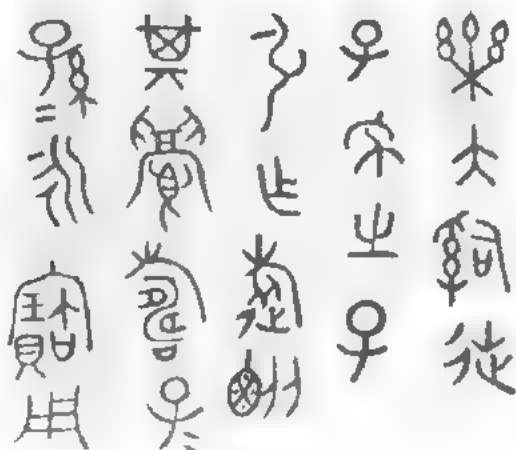 樂大𤔲徒
子之子
引乍旅
其眉壽子＝
孫＝永寶用